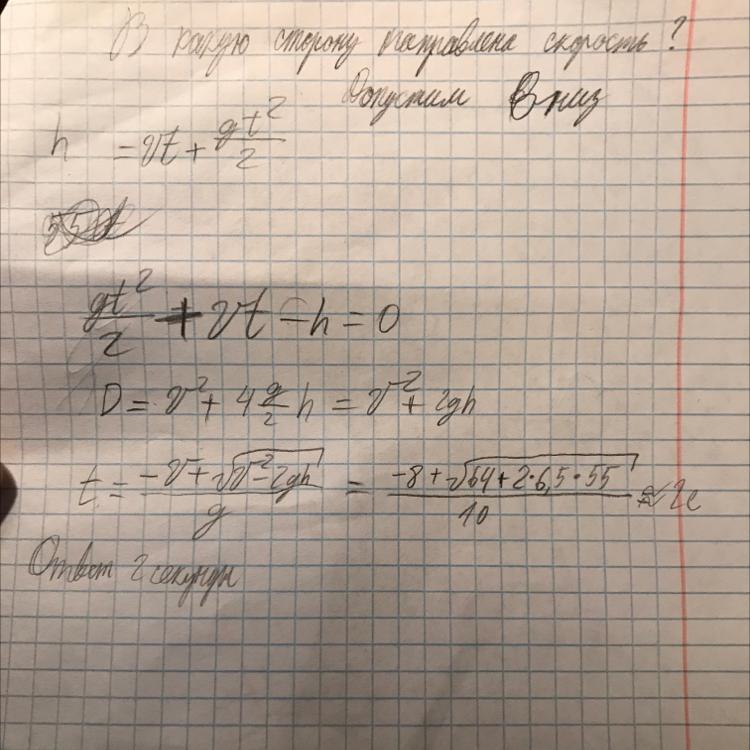 В какую сторону направлена скорость?
Допустим Вниз
h = vt + gt²/2
gt²/2 + vt - h = 0
D = v² + 4 g/2 h = v² + 2gh
t = (-v + √(v² - 2gh))/g = (-8 + √(64 + 2·6,5·55))/10 ≈ 2с
Ответ 2 секунды